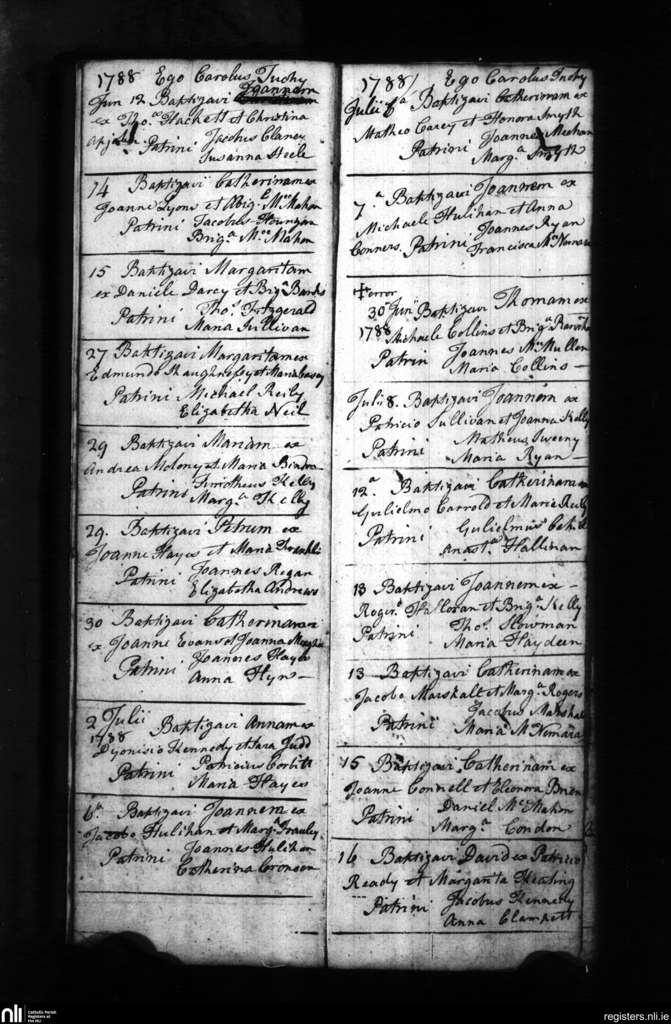 1788 Ego Carolus Tuohy
Jun 12 Baptizavi Joannem
ex Tho.s Hackett et Christina
Patrini Jacobus Clancy
Susanna Steele
14 Baptizavi Catherinam ex
Joanne Lyons et Abig.l McMahon
Patrini Jacobus Hourigan
Brig.a McMahon
15 Baptizavi Margaritam
ex Daniele Darcy et Brig.a Banks
Patrini Tho.s Fitzgerald
Maria Sullivan
27 Baptizavi Margaritam ex
Edmundo Shaughnessy et Maria
Patrini Michael Reily
Elizabetha Neil
29 Baptizavi Mariam ex
Andrea Moloney et Maria
Patrini Timotheus Kelly
Marg.a Kelly
29. Baptizavi Petrum ex
Joanne Hayes et Maria
Patrini Joannes Regan
Elizabetha Andrews
30 Baptizavi Catherinam
ex Joanne Evans et Joanna Meagher
Patrini Joannes Hayes
Anna Hyns
2 Julii
1788 Baptizavi Annam ex
Dyonisio Kennedy et Sara Judd
Patrini Patricius Corbitt
Maria Hayes
6.a Baptizavi Joannem ex
Jacobo Hulihan et Marg.a Frauley
Patrini Joannes Hulihan
Catherina Croneen
1788/ Ego Carolus Tuohy
Julii 6a Baptizavi Catherinam ex
Matheo Carey et Honora Smyth
Patrini Joannes Meehan
Marg.a Smyth
7.a Baptizavi Joannem ex
Michaele Hulihan et Anna
Conners. Patrini Joannes Ryan
Francisca McNamara
error
30 Jun Baptizavi Thomam ex
1788 Michaele Collins et Brig.a
Patrin Joannes McMullen
Maria Collins
Julii 8. Baptizavi Joannem ex
Patricio Sullivan et Joanna Kelly
Patrini Matheus Sweeny
Maria Ryan
12a. Baptizavi Catherinam ex
Gulielmo Carrold et Maria Reily
Patrini Gulielmus Cahill
Anast.a Hallinan
13 Baptizavi Joannem ex
Roger.o Halloran et Brig.a Kelly
Patrini Tho.s Slowman
Maria Haydeen
13 Baptizavi Catherinam ex
Jacobo Marshall et Marg.a Rogers
Patrini Jacobus Marshal
Maria McNmara
15 Baptizavi Catherinam ex
Joanne Connell et Eleonora Brien
Patrini Daniel McMahon
Marg.a Condon
16 Baptizavi David ex Patricio
Ready et Margarita Keating
Patrini Jacobus Kennedy
Anna Clampett
nli Catholic Parish
Registers at
the NLI
registers.nli.ie